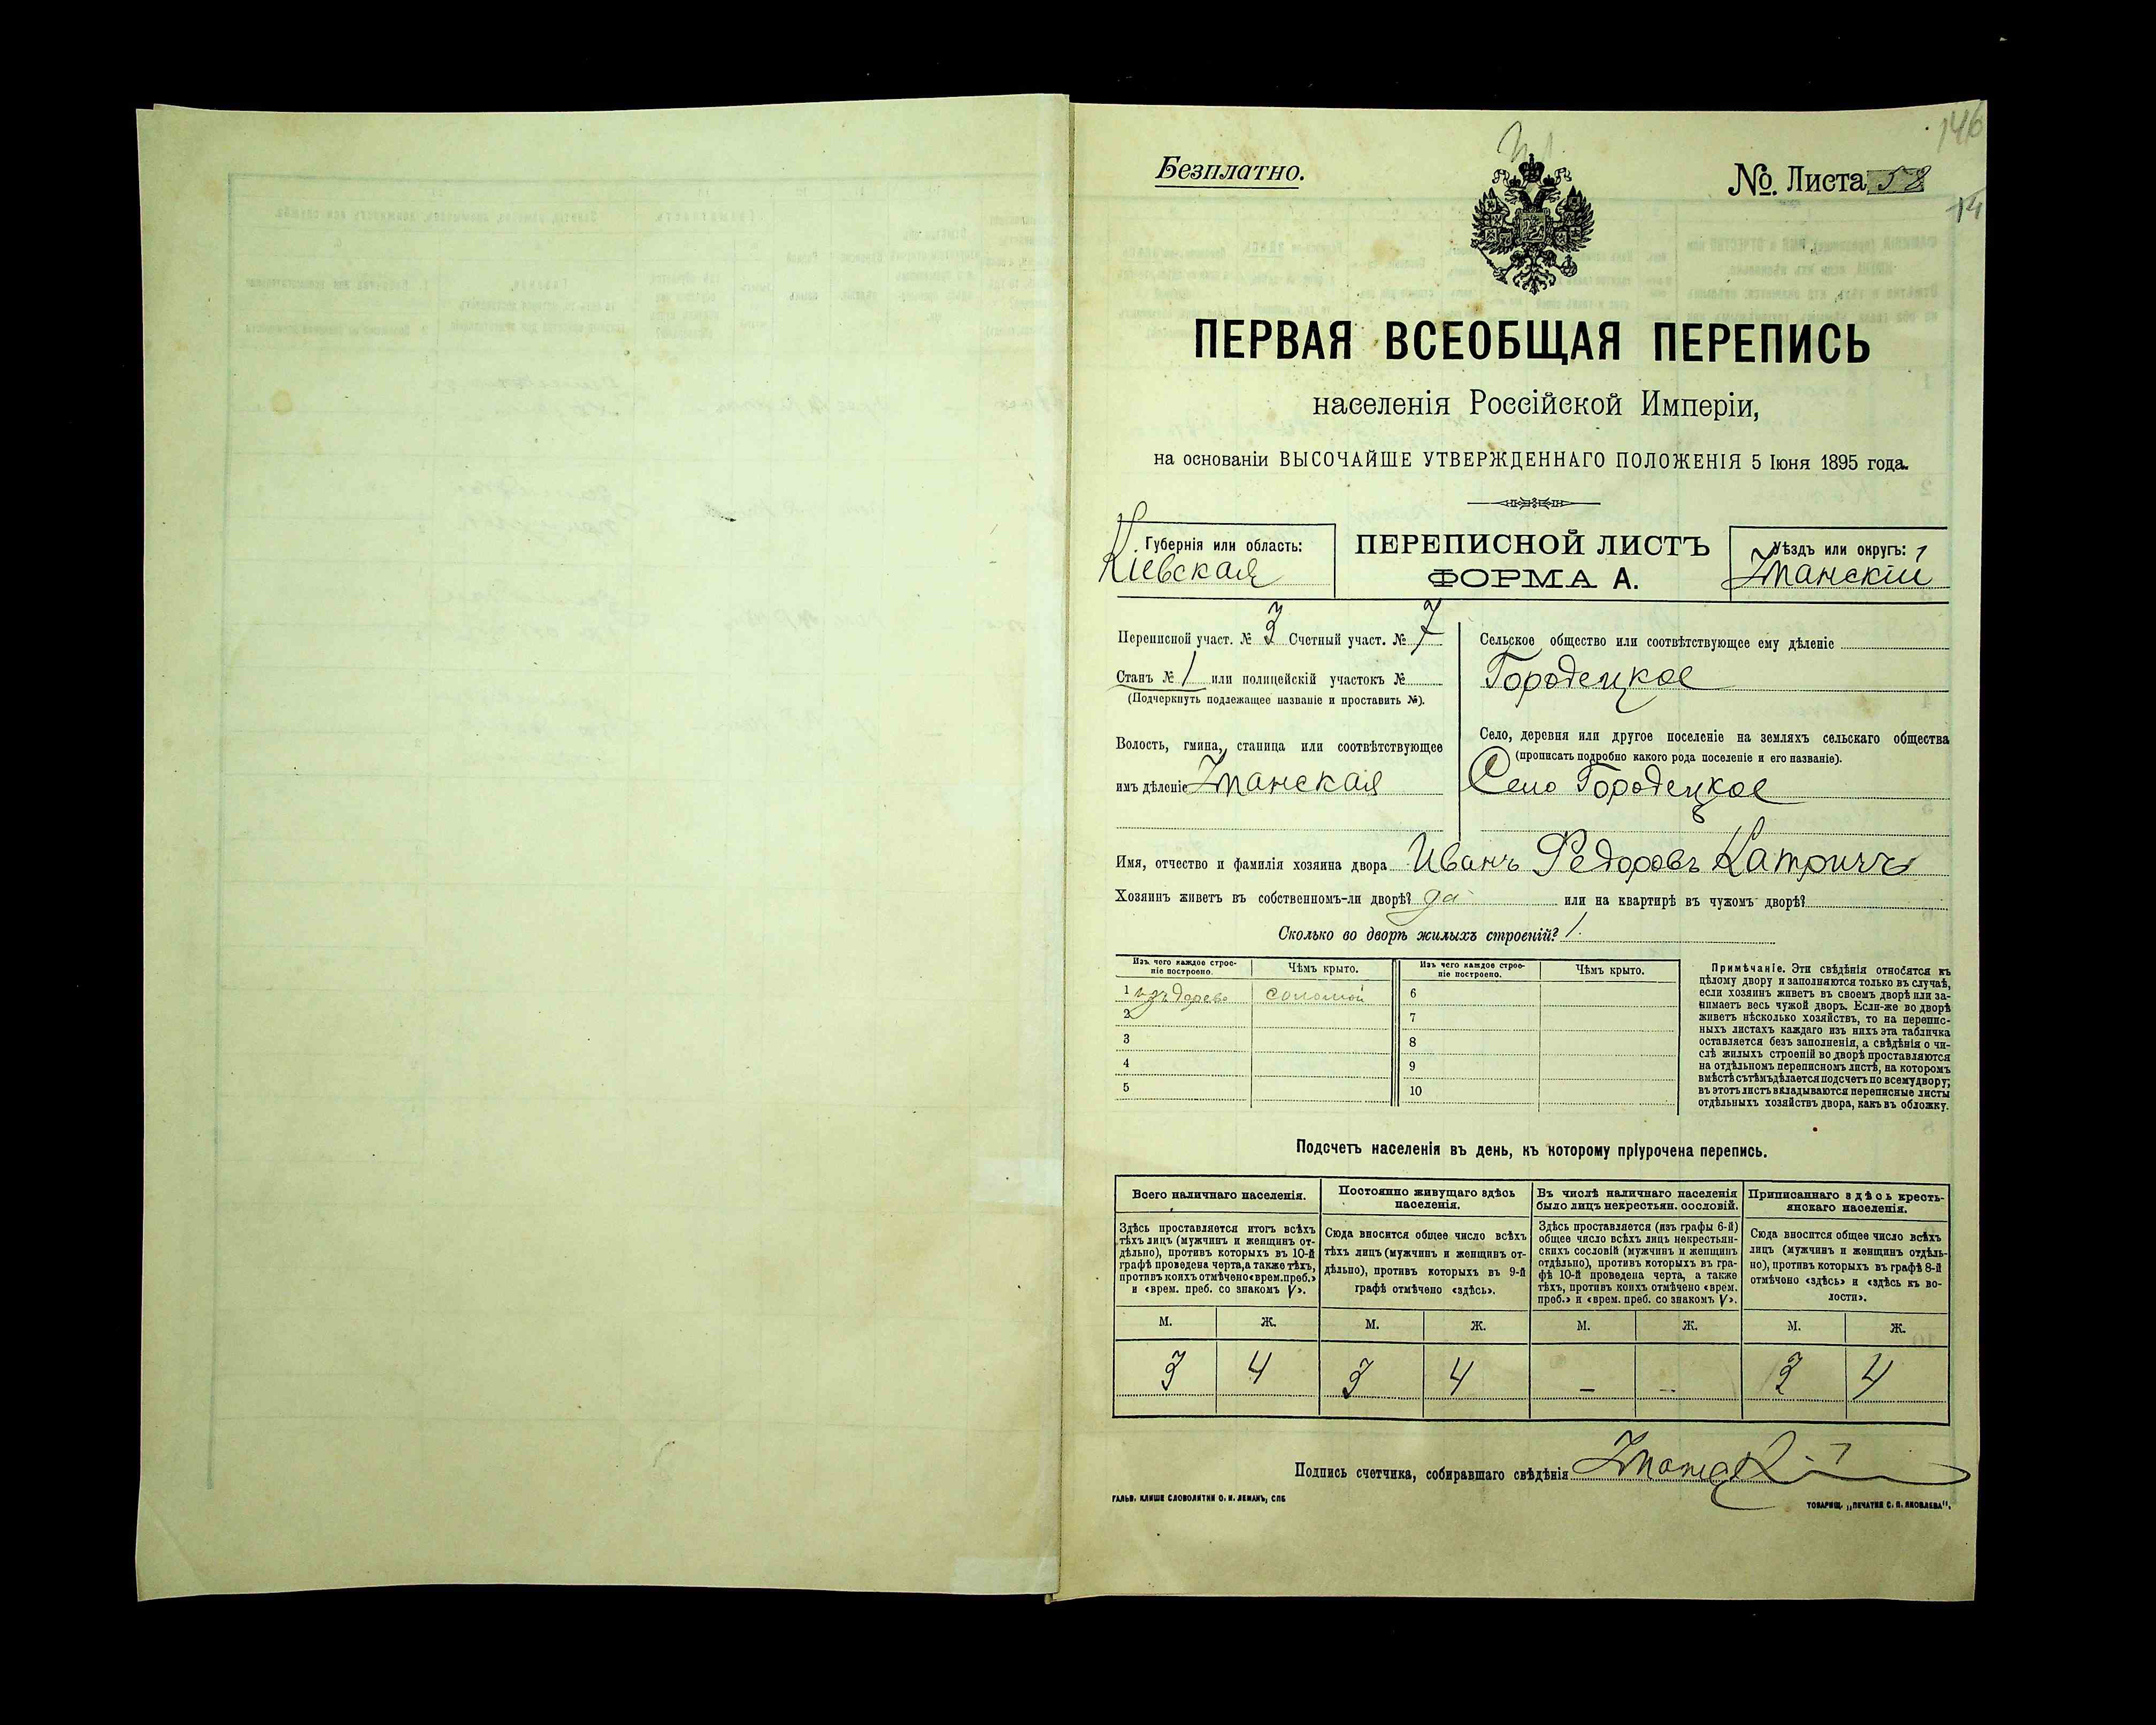 146
Безплатно.
№ Листа 58
14
ПЕРВАЯ ВСЕОБЩАЯ ПЕРЕПИСЬ
населенія Россійской Имперіи,
на основаніи ВЫСОЧАЙШЕ УТВЕРЖДЕННАГО ПОЛОЖЕНІЯ 5 Іюня 1895 года.
Губернія или область:
Кіевская
ПЕРЕПИСНОЙ ЛИСТЪ
ФОРМА А.
Уѣздъ или округъ:
Уманскій
Переписной участ. № 3 Счетный участ. № 7
Станъ № 1 или полицейскій участокъ №
(Подчеркнуть подлежащее названіе и проставить №).
Волость, гмина, станица или соотвѣтствующее
имъ дѣленіе Уманская
Сельское общество или соотвѣтствующее ему дѣленіе
Городецкое
Село, деревня или другое поселеніе на земляхъ сельскаго общества
(прописать подробно какого рода поселеніе и его названіе).
Село Городецкое
Имя, отчество и фамилія хозяина двора Иванъ Федоровъ Катричъ
Хозяинъ живетъ въ собственномъ-ли дворѣ? да или на квартирѣ въ чужомъ дворѣ?
Сколько во дворѣ жилыхъ строеній? 1.
Изъ чего каждое строе-
ніе построено.
Чѣмъ крыто.
Изъ чего каждое строе-
ніе построено.
Чѣмъ крыто.
1 изъ дерева соломой
2
3
4
5
6
7
8
9
10
Примѣчаніе. Эти свѣдѣнія относятся къ
цѣлому двору и заполняются только въ случаѣ,
если хозяинъ живетъ въ своемъ дворѣ или за-
нимаетъ весь чужой дворъ. Если-же во дворѣ
живетъ нѣсколько хозяйствъ, то на перепис-
ныхъ листахъ каждаго изъ нихъ эта табличка
оставляется безъ заполненія, а свѣдѣнія о чи-
слѣ жилыхъ строеній во дворѣ проставляются
на отдѣльномъ переписномъ листѣ, на которомъ
вмѣстѣ съ тѣмъ дѣлается подсчетъ по всему двору;
въ этотъ листъ вкладываются переписные листы
отдѣльныхъ хозяйствъ двора, какъ въ обложку.
Подсчетъ населенія въ день, къ которому пріурочена перепись.
Всего наличнаго населенія.
Здѣсь проставляется итогъ всѣхъ
тѣхъ лицъ (мужчинъ и женщинъ от-
дѣльно), противъ которыхъ въ 10-й
графѣ проведена черта, а также тѣхъ,
противъ коихъ отмѣчено «врем. преб.»
и «врем. преб. со знакомъ V».
Постоянно живущаго здѣсь
населенія.
Сюда вносится общее число всѣхъ
тѣхъ лицъ (мужчинъ и женщинъ от-
дѣльно), противъ которыхъ въ 9-й
графѣ отмѣчено «здѣсь».
Въ числѣ наличнаго населенія
было лицъ некрестьян. сословій.
Здѣсь проставляется (изъ графы 6-й)
общее число всѣхъ лицъ некрестьян-
скихъ сословій (мужчинъ и женщинъ
отдѣльно), противъ которыхъ въ гра-
фѣ 10-й проведена черта, а также
тѣхъ, противъ коихъ отмѣчено «врем.
преб.» и «врем. преб. со знакомъ V».
Приписаннаго здѣсь кресть-
янскаго населенія.
Сюда вносится общее число всѣхъ
лицъ (мужчинъ и женщинъ отдѣль-
но), противъ которыхъ въ графѣ 8-й
отмѣчено «здѣсь» и «здѣсь къ во-
лости».
М. Ж. М. Ж. М. Ж. М. Ж.
3 4 3 4 – – 3 4
Подпись счетчика, собиравшаго свѣдѣнія
ГАЛЬВ. КЛИШЕ СЛОВОЛИТНИ О. И. ЛЕМАНЪ, СПБ
ТОВАРИЩ. „ПЕЧАТНЯ С. П. ЯКОВЛЕВА".